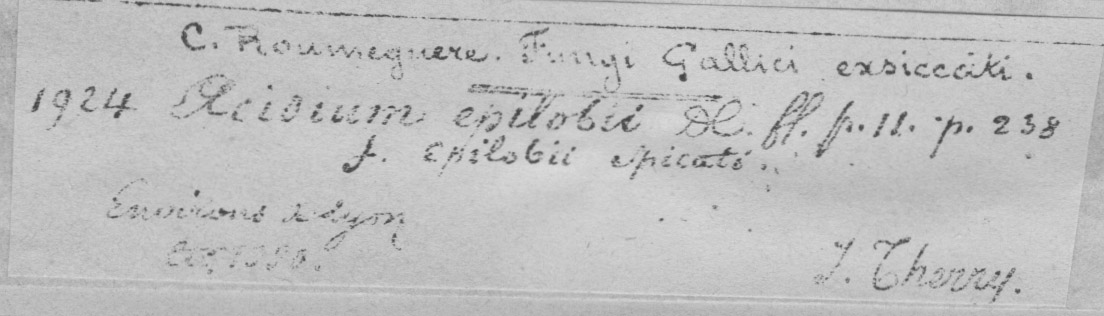 C. Roumeguere. Fungi Gallici exsiccati.
1924 Æcidium epilobii DC. fl. fr. 11. p. 238
f. Epilobii spicati.
Environs de Lyon
J. Therry.